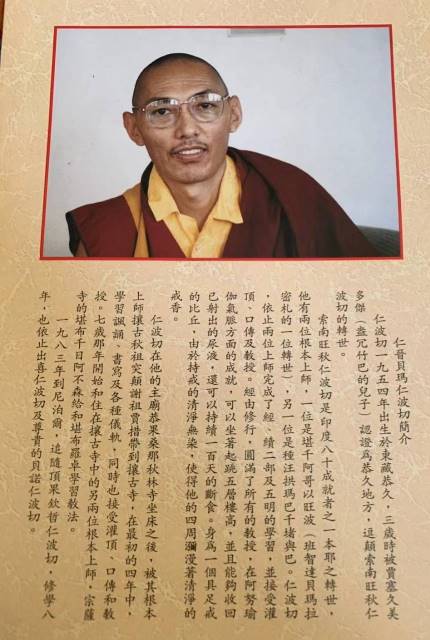 仁晉貝瑪仁波切簡介
仁波切一九五四年出生於東藏恭久,三歲時被賈塞久美
多傑(盎冗竹巴的兒子)認證為恭久地方,這顛索南旺秋仁
波切的轉世。
索南旺秋仁波切是印度八十成就者之一本耶之轉世,
他有兩位根本上師,一位是堪千阿哥以旺波(班智達貝瑪拉
密札的一位轉世),另一位是種汪拱瑪巴千堵與巴。仁波切
,依止兩位上師完成了經、續二部及五明的學習,並接受灌
頂、口傳及教授。經由修行,圓滿了所有的教授,在阿努瑜
伽氣脈方面的成就,可以坐著起跳五層樓高,並且能夠收回
已射出的尿液,還可以持續一百天的斷食。身為一個具足戒
的比丘,由於持戒的清淨無染,使得他的四周瀰漫著清淨的
戒香。
仁波切在他的主廟恭果桑那秋林寺坐床之後,被其根本
上師攘古秋祖突顛謝祖賈措帶到攘古寺,在最初的四年中,
學習諷誦、書寫及各種儀軌,同時也接受灌頂、口傳和教
授。七歲那年開始和住在攘古寺中的另兩位根本上師,宗薩
寺的堪布千日阿不森給和堪布羅卓學習教法。
一九八三年到尼泊爾,追隨頂果欽哲仁波切,修學八
年,也依止出喜仁波切及尊貴的貝諾仁波切。